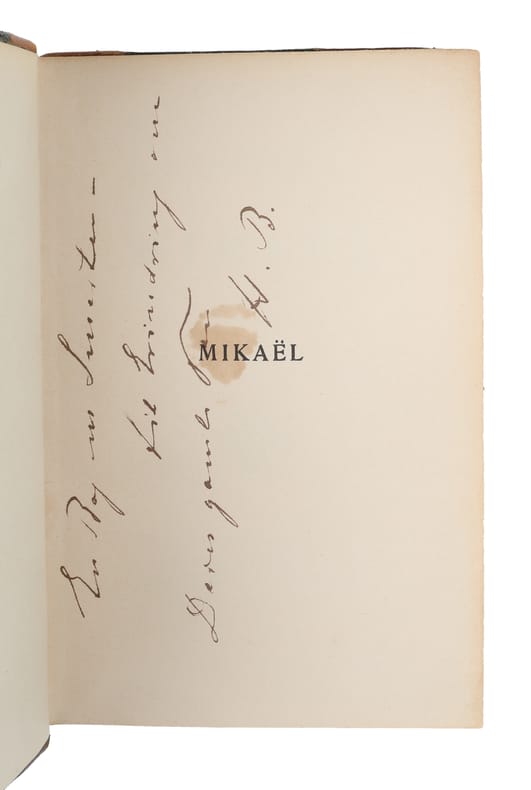 En Bog om Smerten –
til Erindring om
Deres gamle Ven
H. B.
MIKAËL